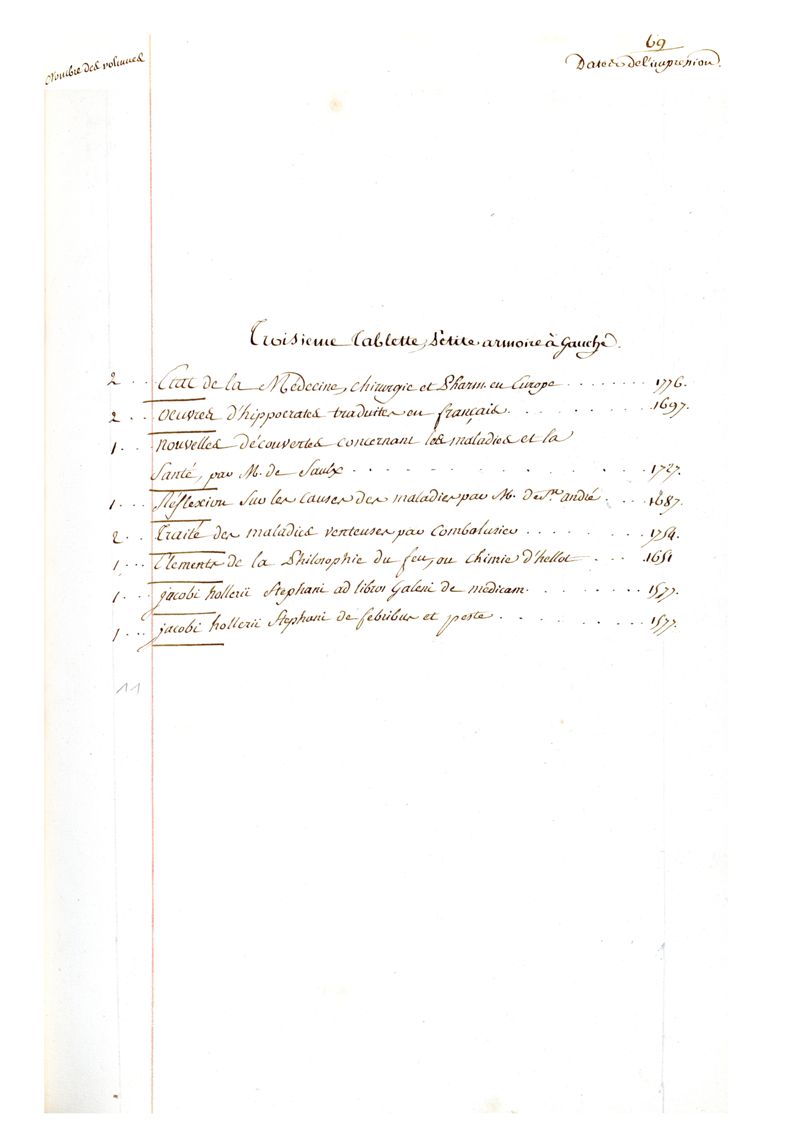 69
Nombre des volumes
Dates de l'impression.
Troisieme Tablette, Petite armoire à Gauche.
2 .. Etat de la Médecine, chirurgie et Pharm. en Europe ....... 1776.
2 .. Oeuvres d'hippocrates traduites en français ....... 1697.
1 .. nouvelles découvertes concernant les maladies et la
Santé, par M. de Saulx ....... 1727.
1 ... Réflexion sur les causes des maladies par M. de St. andré ... 1687.
2 .. Traité des maladies venteuses par Combalusier ...... 1754.
1 ... Elements de la Philosophie du feu, ou chimie d'hellot ... 1651
1 ... jacobi hollerii Stephani ad libros Galeni de medicam. ....... 1577.
1 ... jacobi hollerii Stephani de febribus et peste ....... 1577.
11